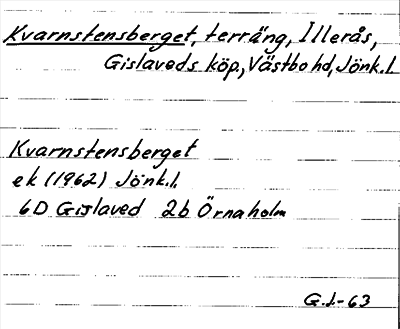 Kvarnstensberget, terräng, Illerås,
Gislaveds köp., Västbo hd, Jönk.l.
Kvarnstensberget
ek (1962) Jönk.l.
6D Gislaved 2b Örnaholm
G.L-63